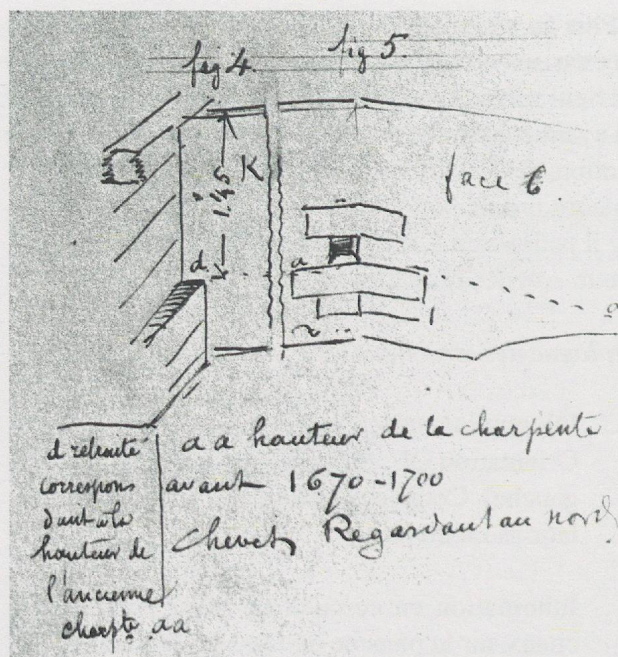 fig 4. fig 5.
K
1.45
face 6.
d
a
a
d retraite
correspon
dant à la
hauteur de
l'ancienne
charpte aa
a a hauteur de la charpente
avant 1670-1700
Chevet Regardant au nord